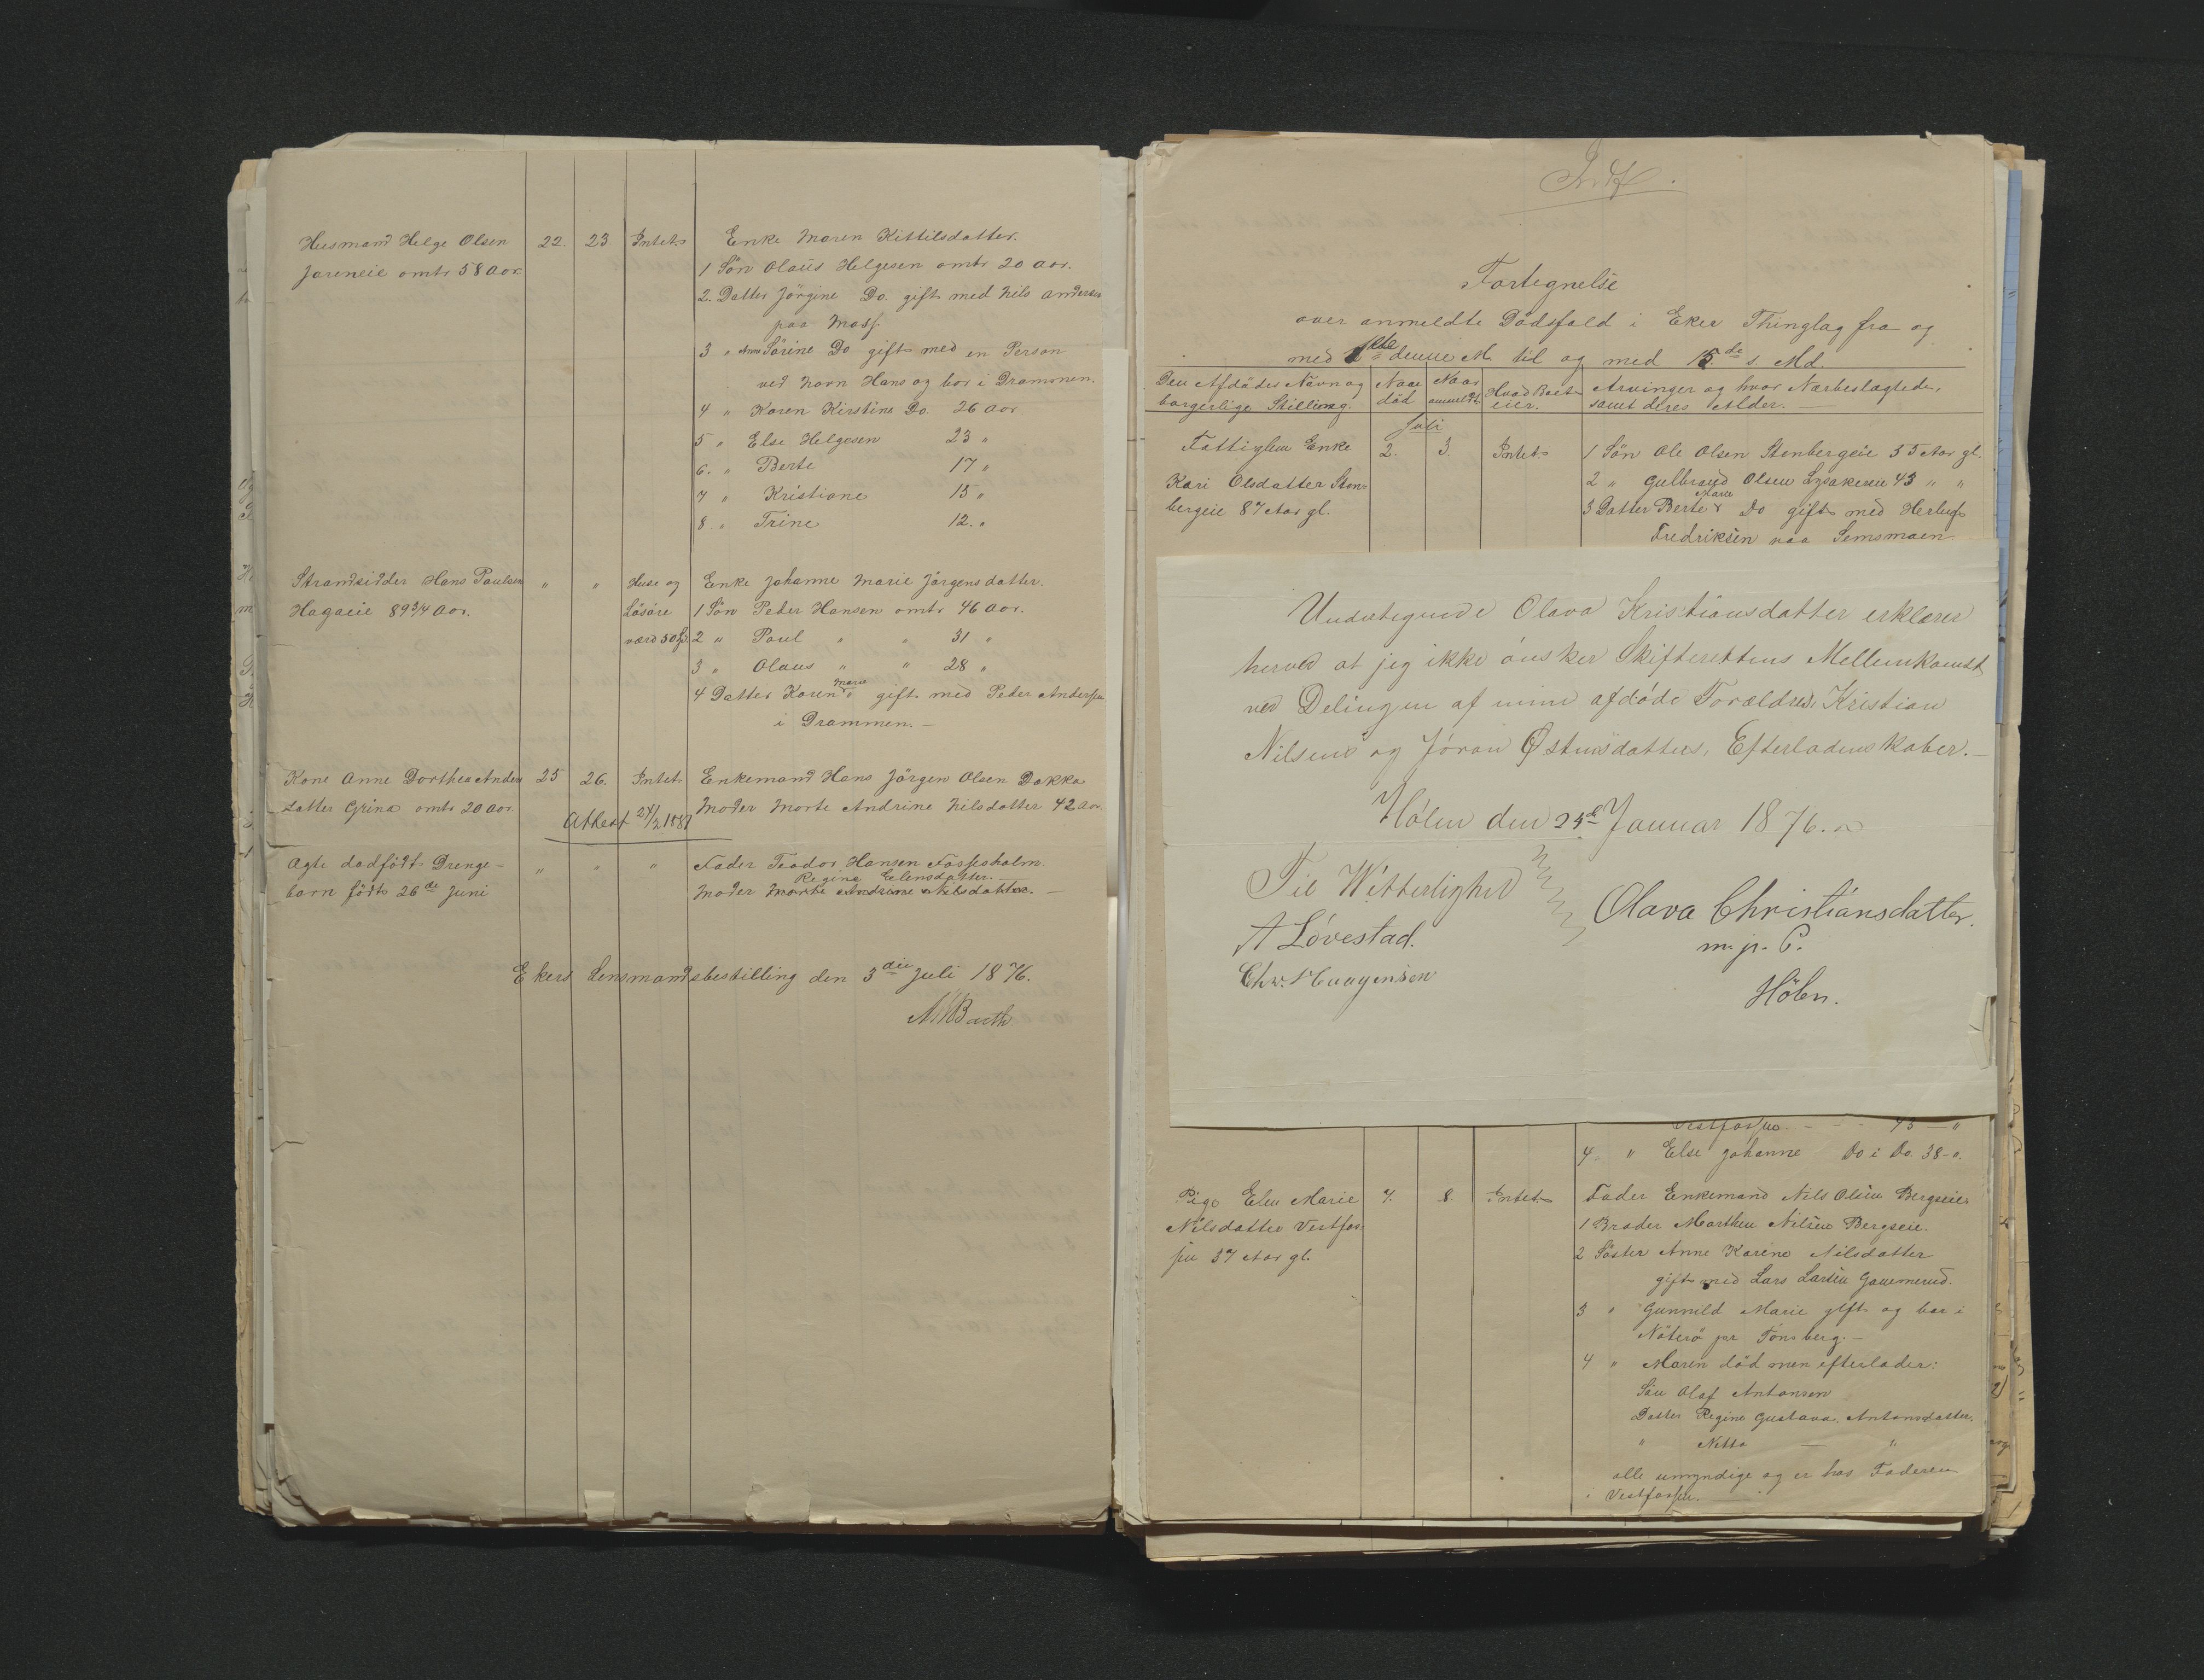 Husmand Helge Olsen 22. 23. Intet. Enke Maren Kittilsdatter.
Jareneie omtr 58 Aar 1 Sön Olaüs Helgesen omtr 20 aar.
2. Datter Jörgine Do. gift med Nils Andersen
paa Moss.
3 " Anne Sörine Do gift med en Person
ved Navn Hans og bor i Drammen.
4 " Karen Kirstine Do. 26 aar
5 " Else Helgesen 23 "
6. " Berte 17 "
7 " Kristiane 15 "
8. " Trine 12. "
Strandsidder Hans Paulsen " " Huse og Enke Johanne Marie Jörgensdatter.
Hagaeie 89 3/4 Aar. Lösöre 1 Sön Peder Hansen omtr 46 aar.
værd 50 2 " Paul " " 31 "
3 " Olaus " " 28 "
4 Datter Karen Marie gift med Peder Anderssen
i Drammen. —
Kone Anne Dorthea Anders 25 26. Intet Enkemand Hans Jörgen Olsen Dokka
datter Grina omtr 20 aar. Moder Marte Andrine Nilsdatter 42 aar.
Athest 24/2 1887
Ægte dödfödt Drenge- " " " Fader Teodor Hansen Fossesholm
barn födt 26de Juni Regine Elensdatter. —
Moder Marthe Andrine Nilsdatter. —
Ekers Lensmandsbestilling den 3die Juli 1876.
Barth
Fortegnelse
over anmeldte Dödsfald i Eker Thinglag fra og
med 1ste denne M til og med 15de s. Md.
Den Afdödes Navn og Naar Naar Hvad Boet Arvinger og hvor Nærbeslægtede,
borgerlige Stilling. död anmeldt. eier. samt deres Alder. —
Juli
Fattiglem Enke 2. 3. Intet. 1 Sön Ole Olsen Stenbergeie 55 Aar gl.
Kari Olsdatter Sten- 2 " Gulbrand Olsen Lysakeren 43 " "
bergeie 87 Aar gl. 3 Datter Berte Marie Do gift med Herlof
Fredriksen paa Semsmoen
Undertegnede Olava Kristiansdatter erklærer
herved at jeg ikke önsker Skifterettens Mellemkomst
ved Delingen af mine afdöde Forældres, Kristian
Nilsens og Jöran Østensdatters, Efterladenskaber. —
Hölen den 25de Januar 1876.
Til Witterlighed
A Lövestad. Olava Christiansdatter.
Chr. Haagensen m. p. P.
Hölen.
Vestfossen — 43 — "
4. " Else Johanne Do i Do. 38 - ".
Pige Elen Marie 7. 8. Intet Fader Enkemand Nils Olsen Bergseie
Nilsdatter Vestfos- 1 Broder Marthin Nilsen Bergseie.
sen 37 Aar gl. 2 Söster Anne Karine Nilsdatter
gift med Lars Larsen Gaumerud.
3 " Gunnild Marie gift og bor i
Nöterö pr Tönsberg. —
4 " Maren död men efterlader:
Sön Olaf Antonsen
Datter Regine Gustava. Antonsdatter.
" Netta — "
alle umyndige og er hos Faderen
i Vestfossen. —